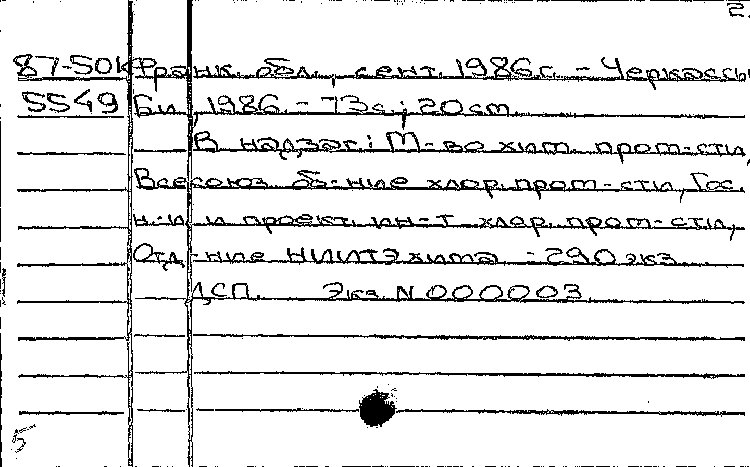 2.
87-50К Франк. обл., сент. 1986г. – Черкассы
5549 Би, 1986. – 73с.; 20см.
В надзаг.: М-во хим. пром-сти,
Всесоюз. об-ние хлор. пром-сти, Гос.
н.-и. и проект. ин-т хлор. пром-сти,
Отд-ние НИИТЭхима – 290 экз.
ДСП. Экз. N 000003.
5